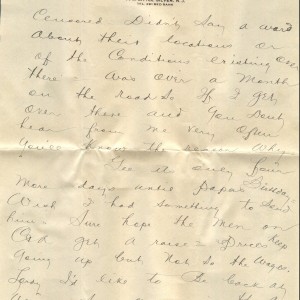 Censored Didnt say a word
About their locations or even
of the Conditions existing
there - was over a month
on the road so If I get
over there and you dont
hear from me very often
youll know the reason Why.
Gee its only four
More days until Papas Birthday.
Wish I had something to send
him. Sure hope the men on Keep
Get a raise - Prices
Going up but Not so the Wages.
I'd like to be back at